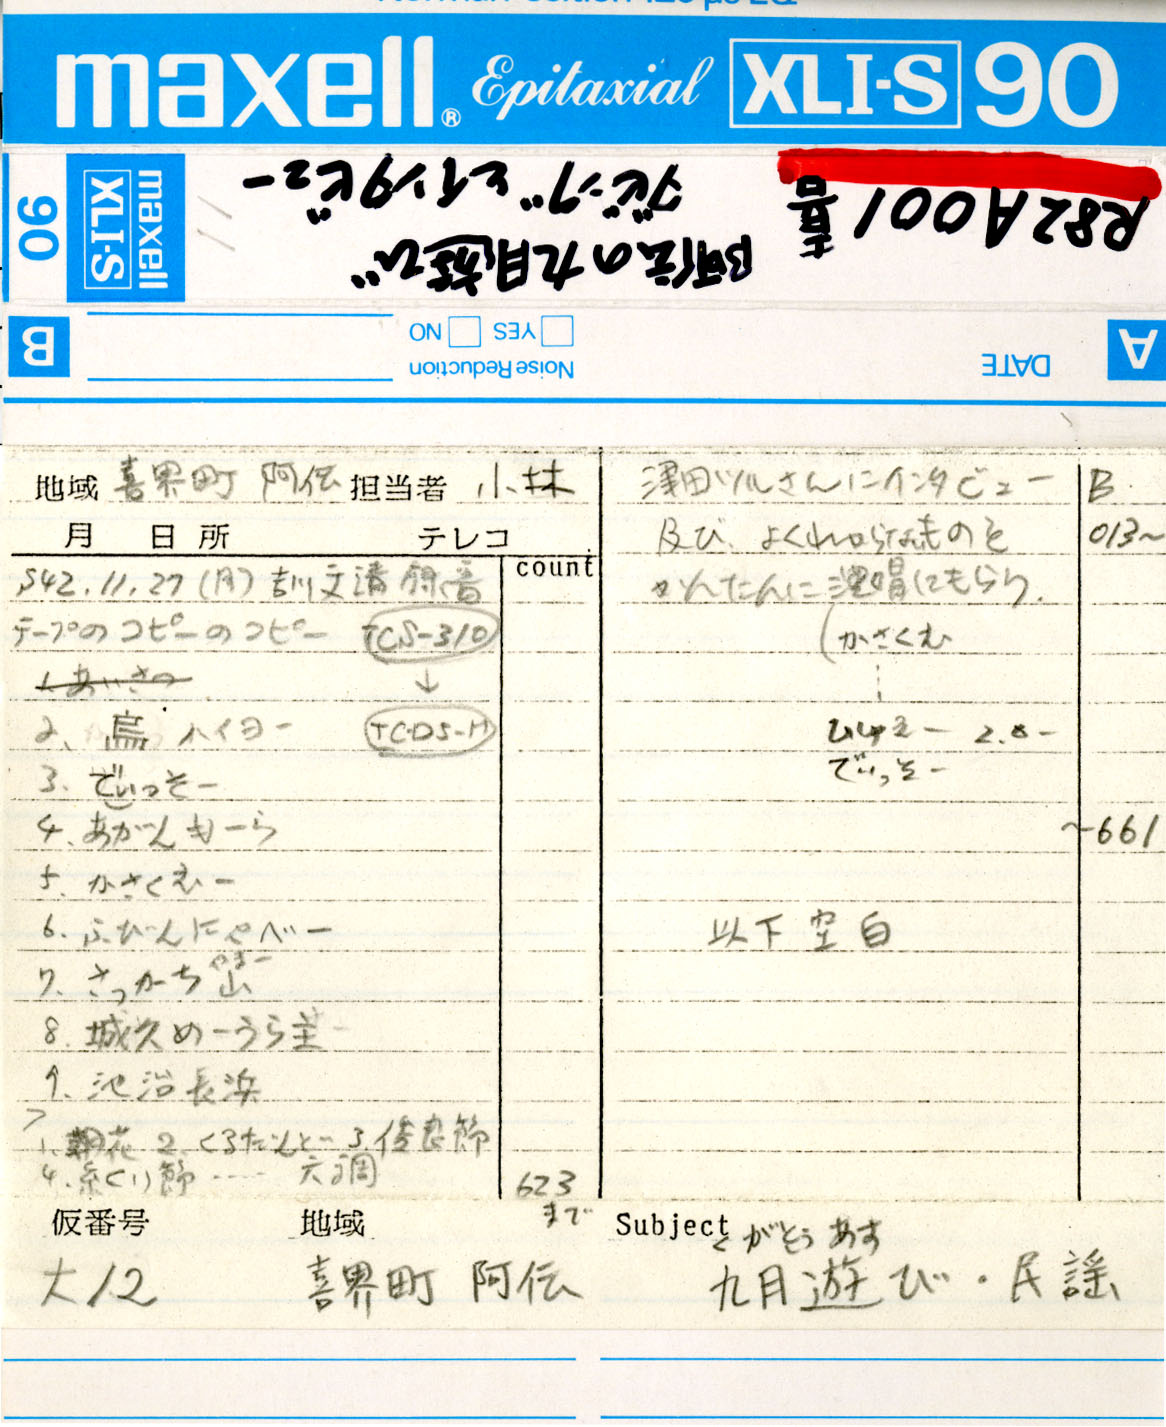 maxell® Epitaxial XLI-S 90
maxell XLI-S 90
R82A001 喜
阿伝の九月遊び
ダビングとインタビュー
A DATE
Noise Reduction
YES NO
B
地域 喜界町 阿伝 担当者 小林
月 日 所 テレコ
count
S42.11.27 (月) 吉川文清 録音
テープのコピーのコピー TCS-310
1. あいさつ ↓
2. 烏ハイヨー TCD5-M
3. でいっそー
4. あがんもーら
5. かさくむー
6. ふびんにゃべー
7. さっかーち山
やまー
8. 城久めーうら
9. 池治長浜
1. 朝花 2. くるだんど 3. 俊良節
4. 糸くり節 …… 六調
623
まで
澤田ツルさんにインタビュー B
及び、よくわからないものを 013~
かんたんに 唱してもらう.
(かさくむ
でいっそー
~661
以下空白
仮番号 地域 Subject
くがとぅあす
大12 喜界町 阿伝 九月遊び・民謡